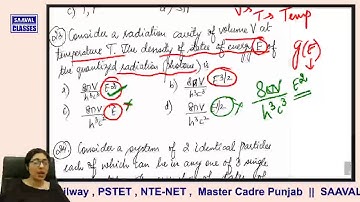 SAAVAL
CLASSES
V→
T→ Temp
Q23 Consider a radiation cavity of volume V at
temperature T. The density of states of energy E of
the quantized radiation (photons) is
g(E)
a) 8πV/h³c³ E²
b) 8πV/h³c³ E^3/2
8πV/h³c³ E²
c) 8πV/h³c² E
d) 8πV/h³c² E^1/2
Consider a system of 2 identical particles
each of which can be in any one of 3 single
ilway , PSTET , NTE-NET , Master Cadre Punjab || SAAVAL